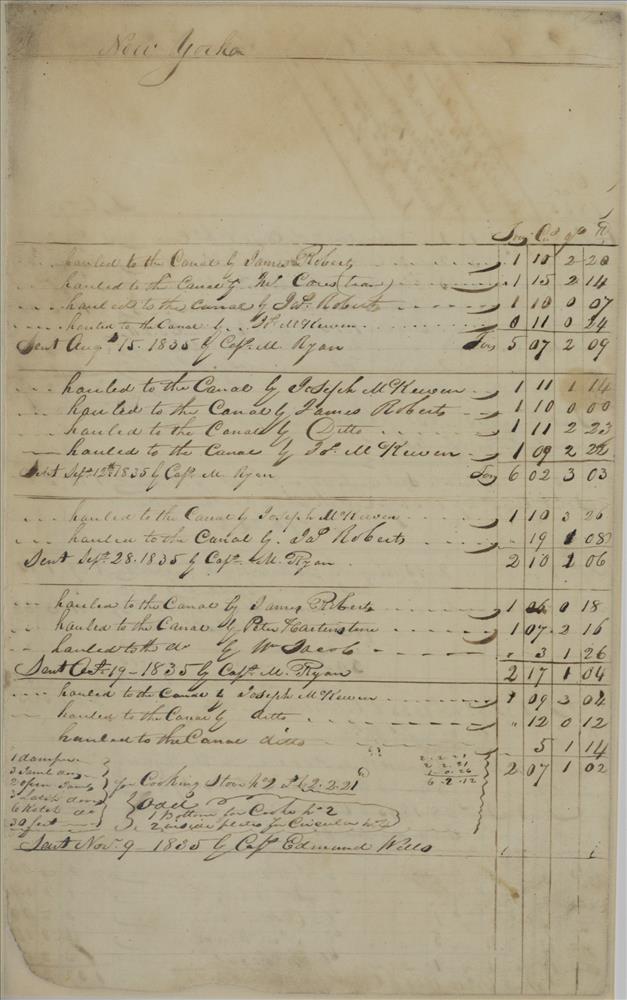 New York
Tons Cwt qr lb
hauled to the Canal by James Roberts 1 10 2 20
hauled to the Canal by 1 15 2 14
hauled to the Canal by Jas. Roberts 1 10 0 07
hauled to the Canal by Js. McKewen 0 11 0 24
Sent Augt. 15. 1835 by Capt. M. Ryan Tons 5 07 2 09
hauled to the Canal by Joseph McKewen 1 11 1 14
hauled to the Canal by James Roberts 1 10 0 00
hauled to the Canal by Ditto 1 11 2 23
hauled to the Canal by Js. McKewen 1 09 2 22
Sent Sept. 12th 1835 by Capt. M. Ryan Tons 6 02 3 03
hauled to the Canal by Joseph McKewen 1 10 3 26
hauled to the Canal by Jas. Roberts " 19 1 08
Sent Sept. 28. 1835 by Capt. M. Ryan 2 10 1 06
hauled to the Canal by James Roberts 1 06 0 18
hauled to the Canal by Peter Hartenstine 1 07 2 16
hauled to the do by Wm Jacob " 3 1 26
Sent Oct. 19 - 1835 by Capt. M. Ryan 2 17 1 04
hauled to the Canal by Joseph McKewen 1 09 3 04
hauled to the Canal by ditto " 12 0 12
hauled to the Canal ditto 5 1 14
2 07 1 02
1 damper
for Cooking Stove No 2
1 Bottom for Cooke No 2
2 inside plates for Circular No 4
30 feet
6 2 12
Sent Nov. 9 - 1835 by Capt Edmund Wells